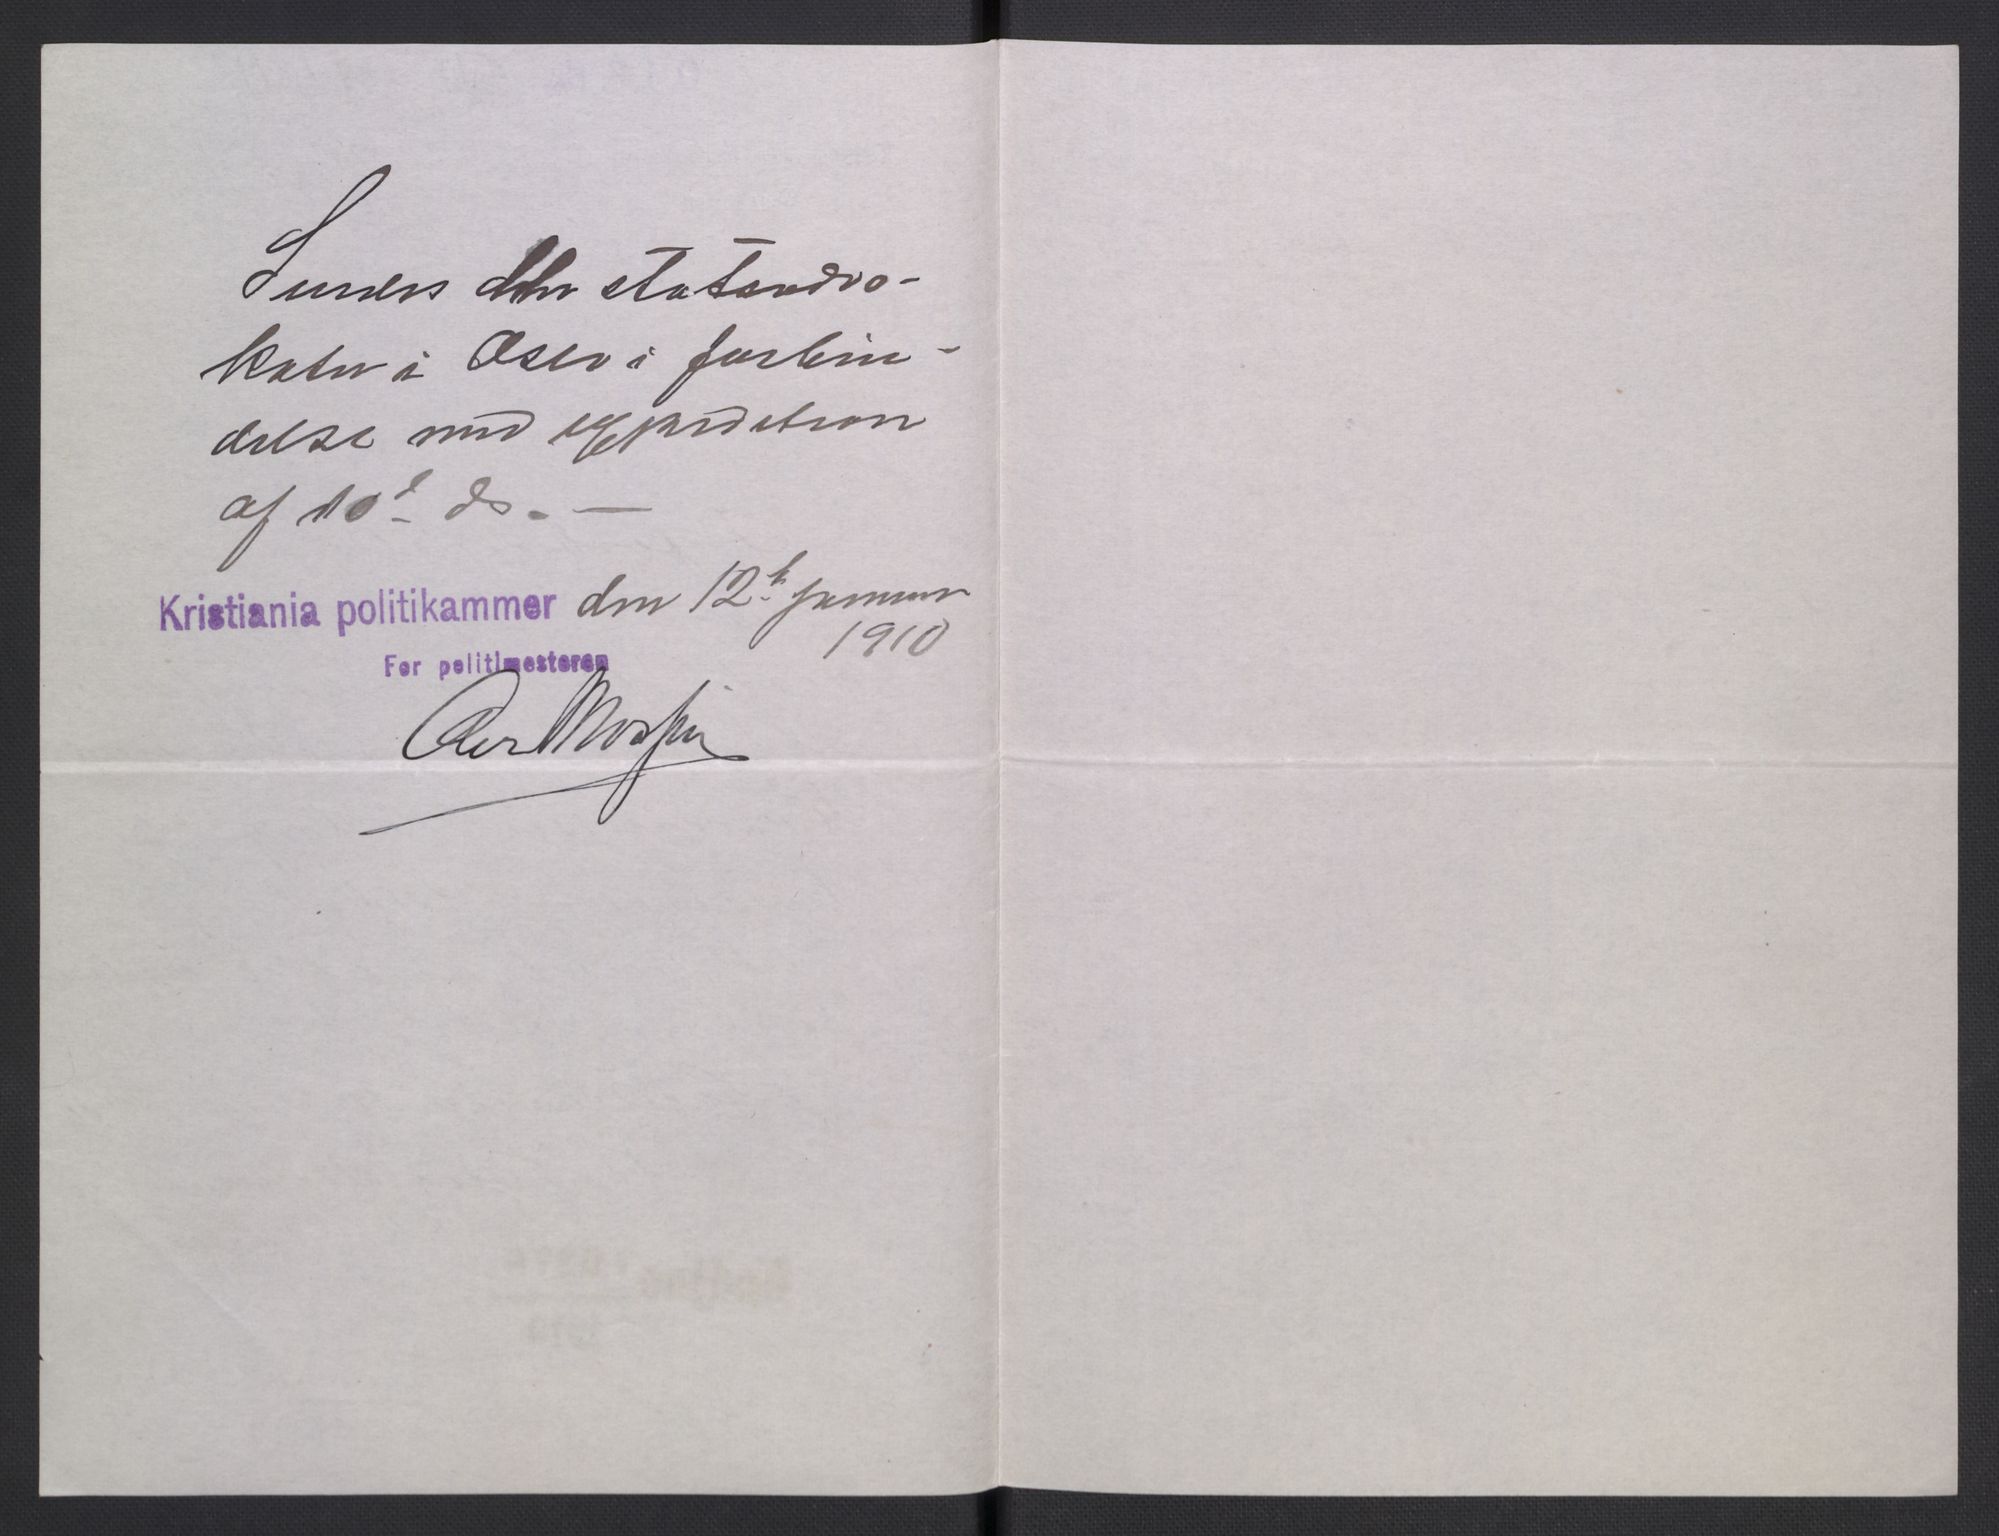 Sendes hr statsadvo-
katen i Oslo i forbin-
delse med expedition
af 10d ds. —
Kristiania politikammer den 12te januar
1910
For politimesteren